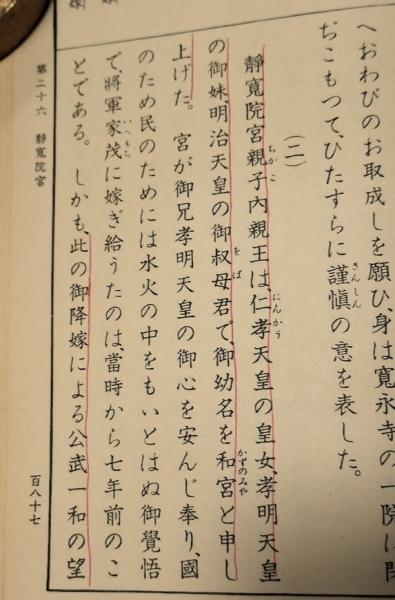 へおわびのお取成しを願ひ、身は寛永寺の一院に閉
ぢこもつて、ひたすらに謹愼の意を表した。
（二）
靜寛院宮親子內親王は、仁孝天皇の皇女、孝明天皇
の御妹、明治天皇の御叔母君で、御幼名を和宮と申し
上げた。宮が御兄孝明天皇の御心を安んじ奉り、國
のため民のためには水火の中をもいとはぬ御覺悟
で、將軍家茂に嫁ぎ給うたのは、當時から七年前のこ
とである。しかも、此の御降嫁による公武一和の望
第二十六 靜寛院宮
百八十七